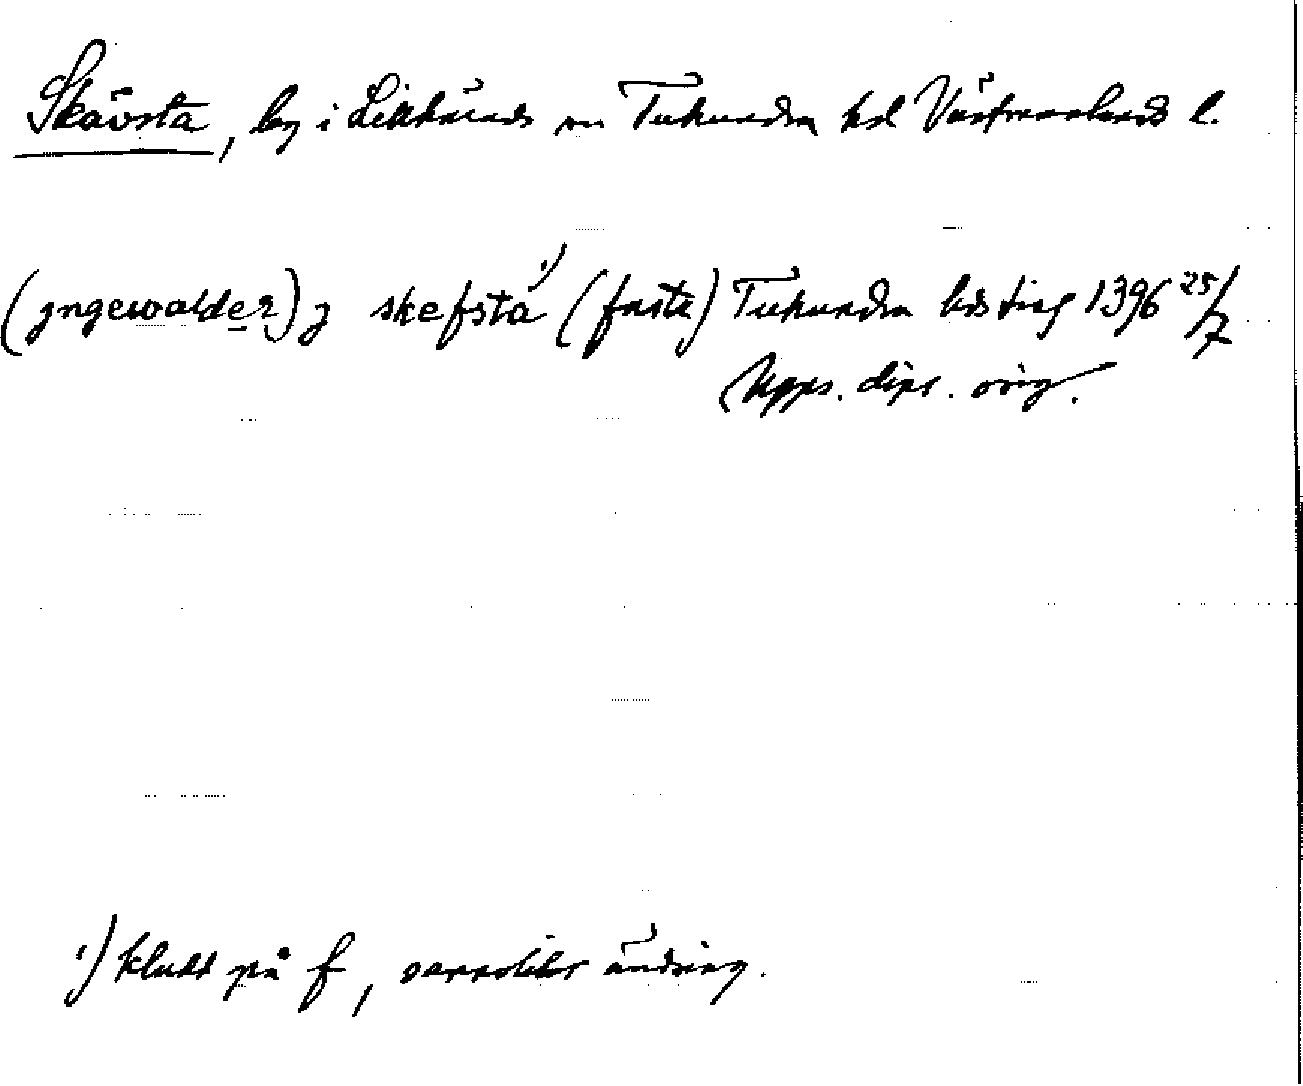 Skävsta, by i Litslunds sn Tuhundra hd Västmanlands l.
(yngewalder) j skefsta¹⁾ (faste) Tuhundra hds ting 1396 25/7
Upps. dipl. orig.
¹⁾ kludd på f, sannolikt ändring.